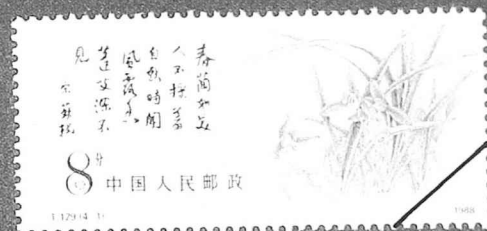 春蘭如美
人不採羞
自獻時聞
風露香
蓬艾深不
見
宋蘇軾
8分
中国人民邮政
T.129.(4-1)
1988